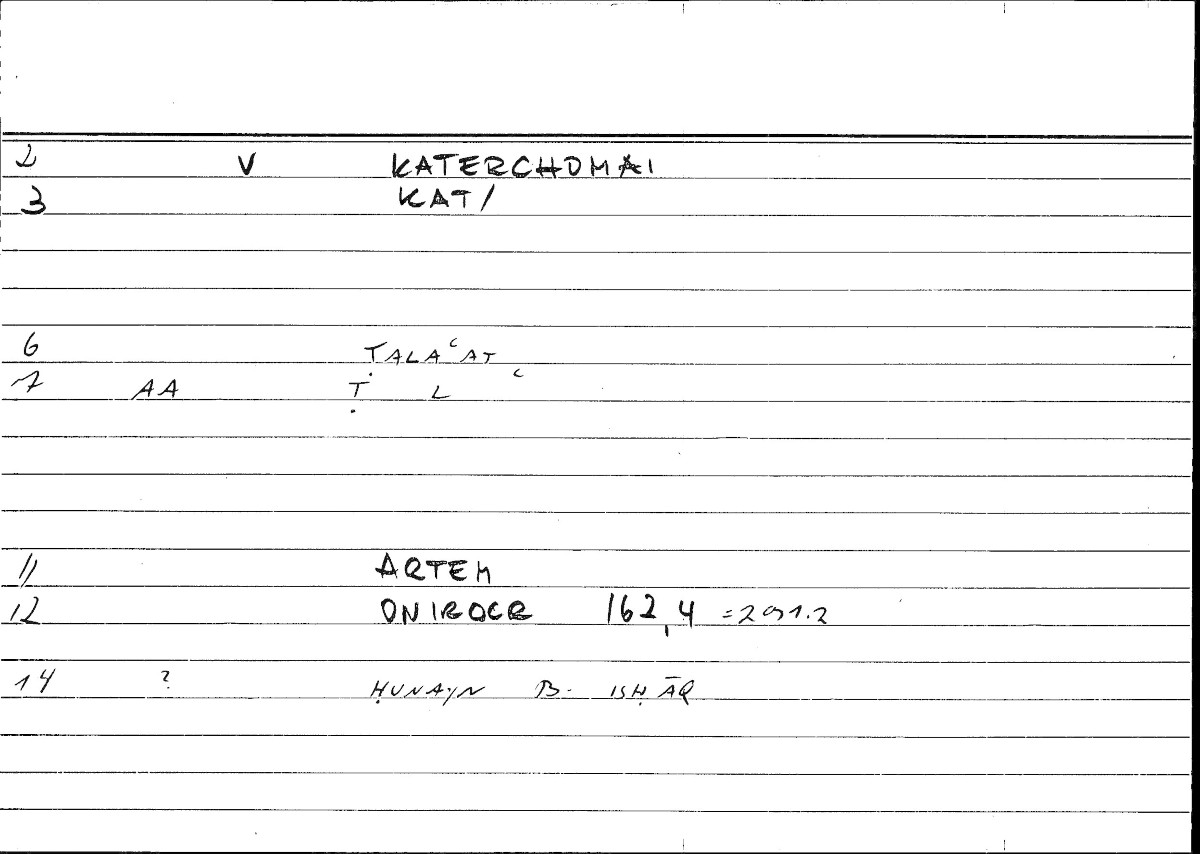 2 V KATERCHOMAI
3 KAT/
6 ṬALAʿAT
7 AA Ṭ L ʿ
11 ARTEM
12 ONIROCR 162,4 =291.2
14 ? ḤUNAYN B. ISḤĀQ